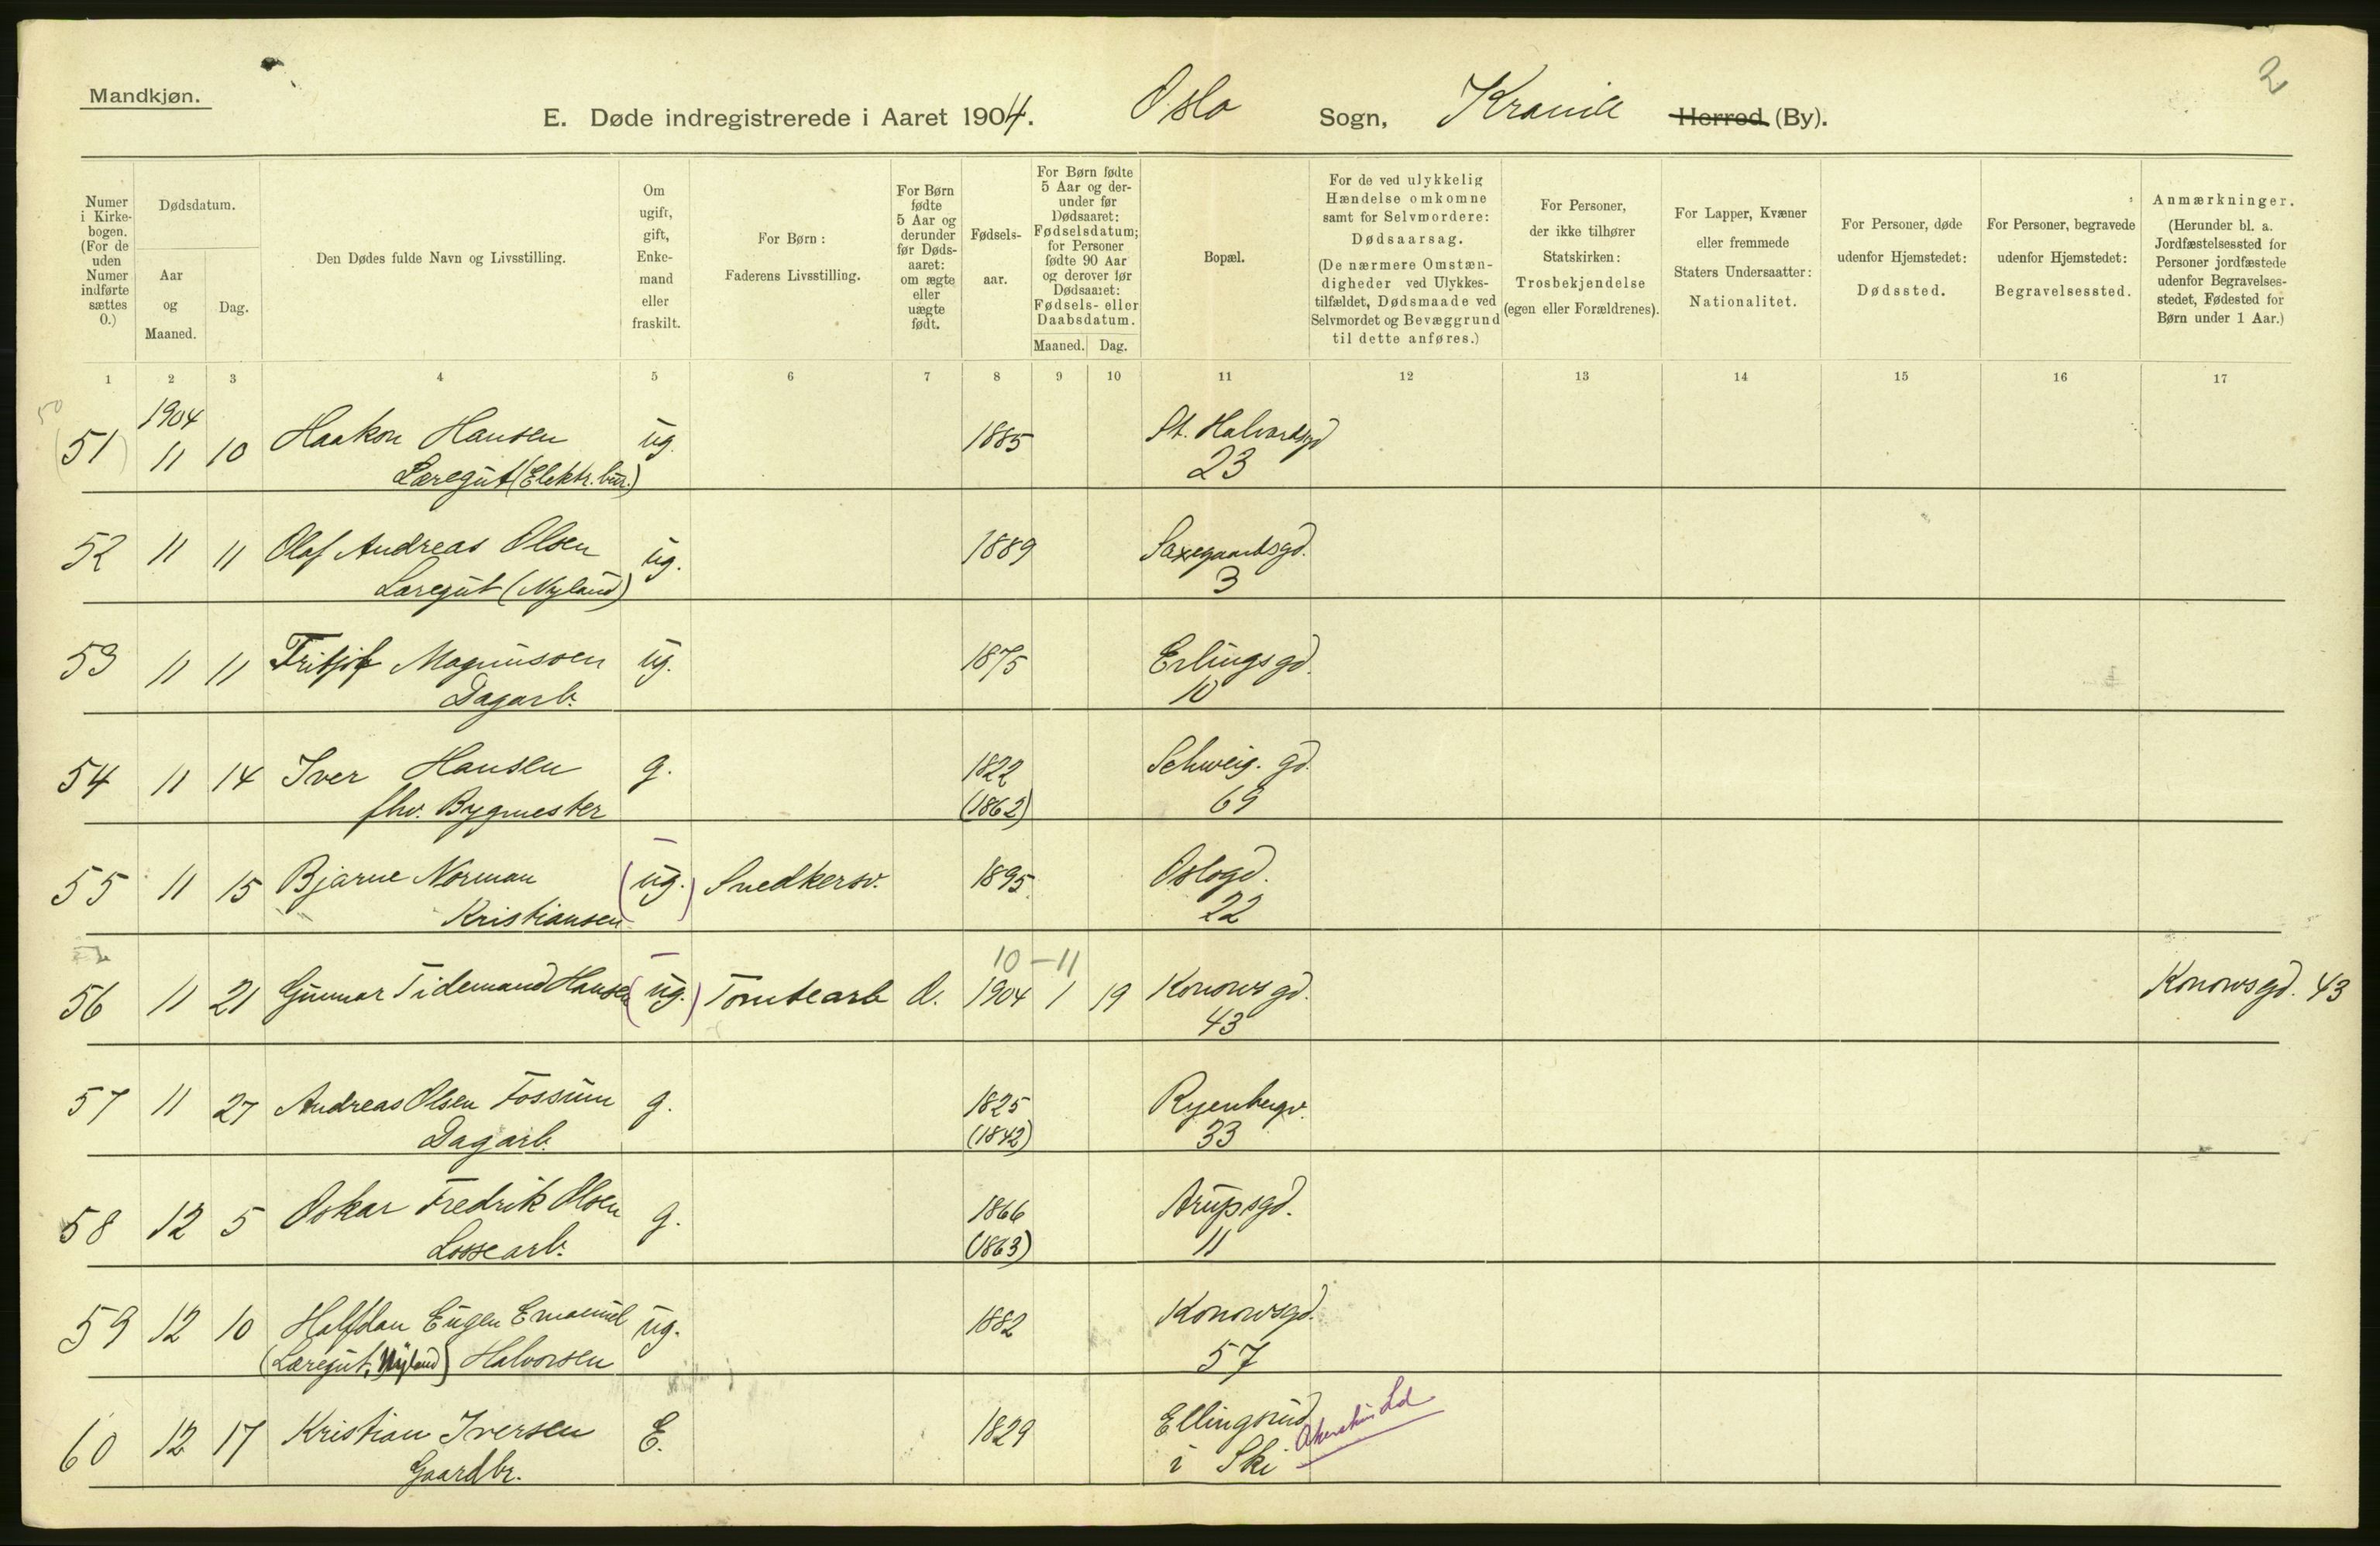 2
Mandkjøn.
E. Døde indregistrerede i Aaret 1904. Oslo Sogn, Krania Herred (By).
Numer i Kirkebogen. (For de uden Numer indførte sættes 0.)
Dødsdatum.
Aar og Maaned.
Dag.
Den Dødes fulde Navn og Livsstilling.
Om ugift, gift, Enkemand eller fraskilt.
For Børn: Faderens Livsstilling.
For Børn fødte 5 Aar og derunder før Dødsaaret: om ægte eller uægte født.
Fødselsaar.
For Børn fødte 5 Aar og derunder før Dødsaaret: Fødselsdatum; for Personer fødte 90 Aar og derover før Dødsaaret: Fødsels- eller Daabsdatum.
Maaned. Dag.
Bopæl.
For de ved ulykkelig Hændelse omkomne samt for Selvmordere: Dødsaarsag. (De nærmere Omstændigheder ved Ulykkestilfældet, Dødsmaade ved Selvmordet og Bevæggrund til dette anføres.)
For Personer, der ikke tilhører Statskirken: Trosbekjendelse (egen eller Forældrenes).
For Lapper, Kvæner eller fremmede Staters Undersaatter: Nationalitet.
For Personer, døde udenfor Hjemstedet: Dødssted.
For Personer, begravede udenfor Hjemstedet: Begravelsessted.
Anmærkninger. (Herunder bl. a. Jordfæstelsessted for Personer jordfæstede udenfor Begravelsesstedet, Fødested for Børn under 1 Aar.)
1 2 3 4 5 6 7 8 9 10 11 12 13 14 15 16 17
50
1904
(51) 11 10 Haakon Hansen ug. 1885 St. Halvardsgd
Læregut (Elektr. bur.) 23
52 11 11 Olaf Andreas Olsen ug. 1889 Saxegaardsgd.
Læregut (Nyland) 3
53 11 11 Fritjof Magnussen ug. 1875 Erlingsgd.
Dagarb. 10
54 11 14 Iver Hansen g. 1822 Schweig. gd.
fhv. Bygmester (1862) 69
55 11 15 Bjarne Norman (ug.) Snedkersv. 1895 Oslogd.
Kristiansen 22
10-11
56 11 21 Gunnar Tidemand Hansen (ug.) Tomtearb Æ. 1904 1 19 Konowsgd. Konowsgd. 43
43
57 11 27 Andreas Olsen Fossum g. 1825 Ryenbergv.
Dagarb. (1842) 33
58 12 5 Oskar Fredrik Olsen g. 1866 Arupsgd.
Lossearb. (1863) 11
59 12 10 Halfdan Eugen Emanuel ug. 1882 Konowsgd.
(Læregut, Nyland) Halvorsen 57
60 12 17 Kristian Iversen E. 1829 Ellingsrud
Gaardbr. i Ski